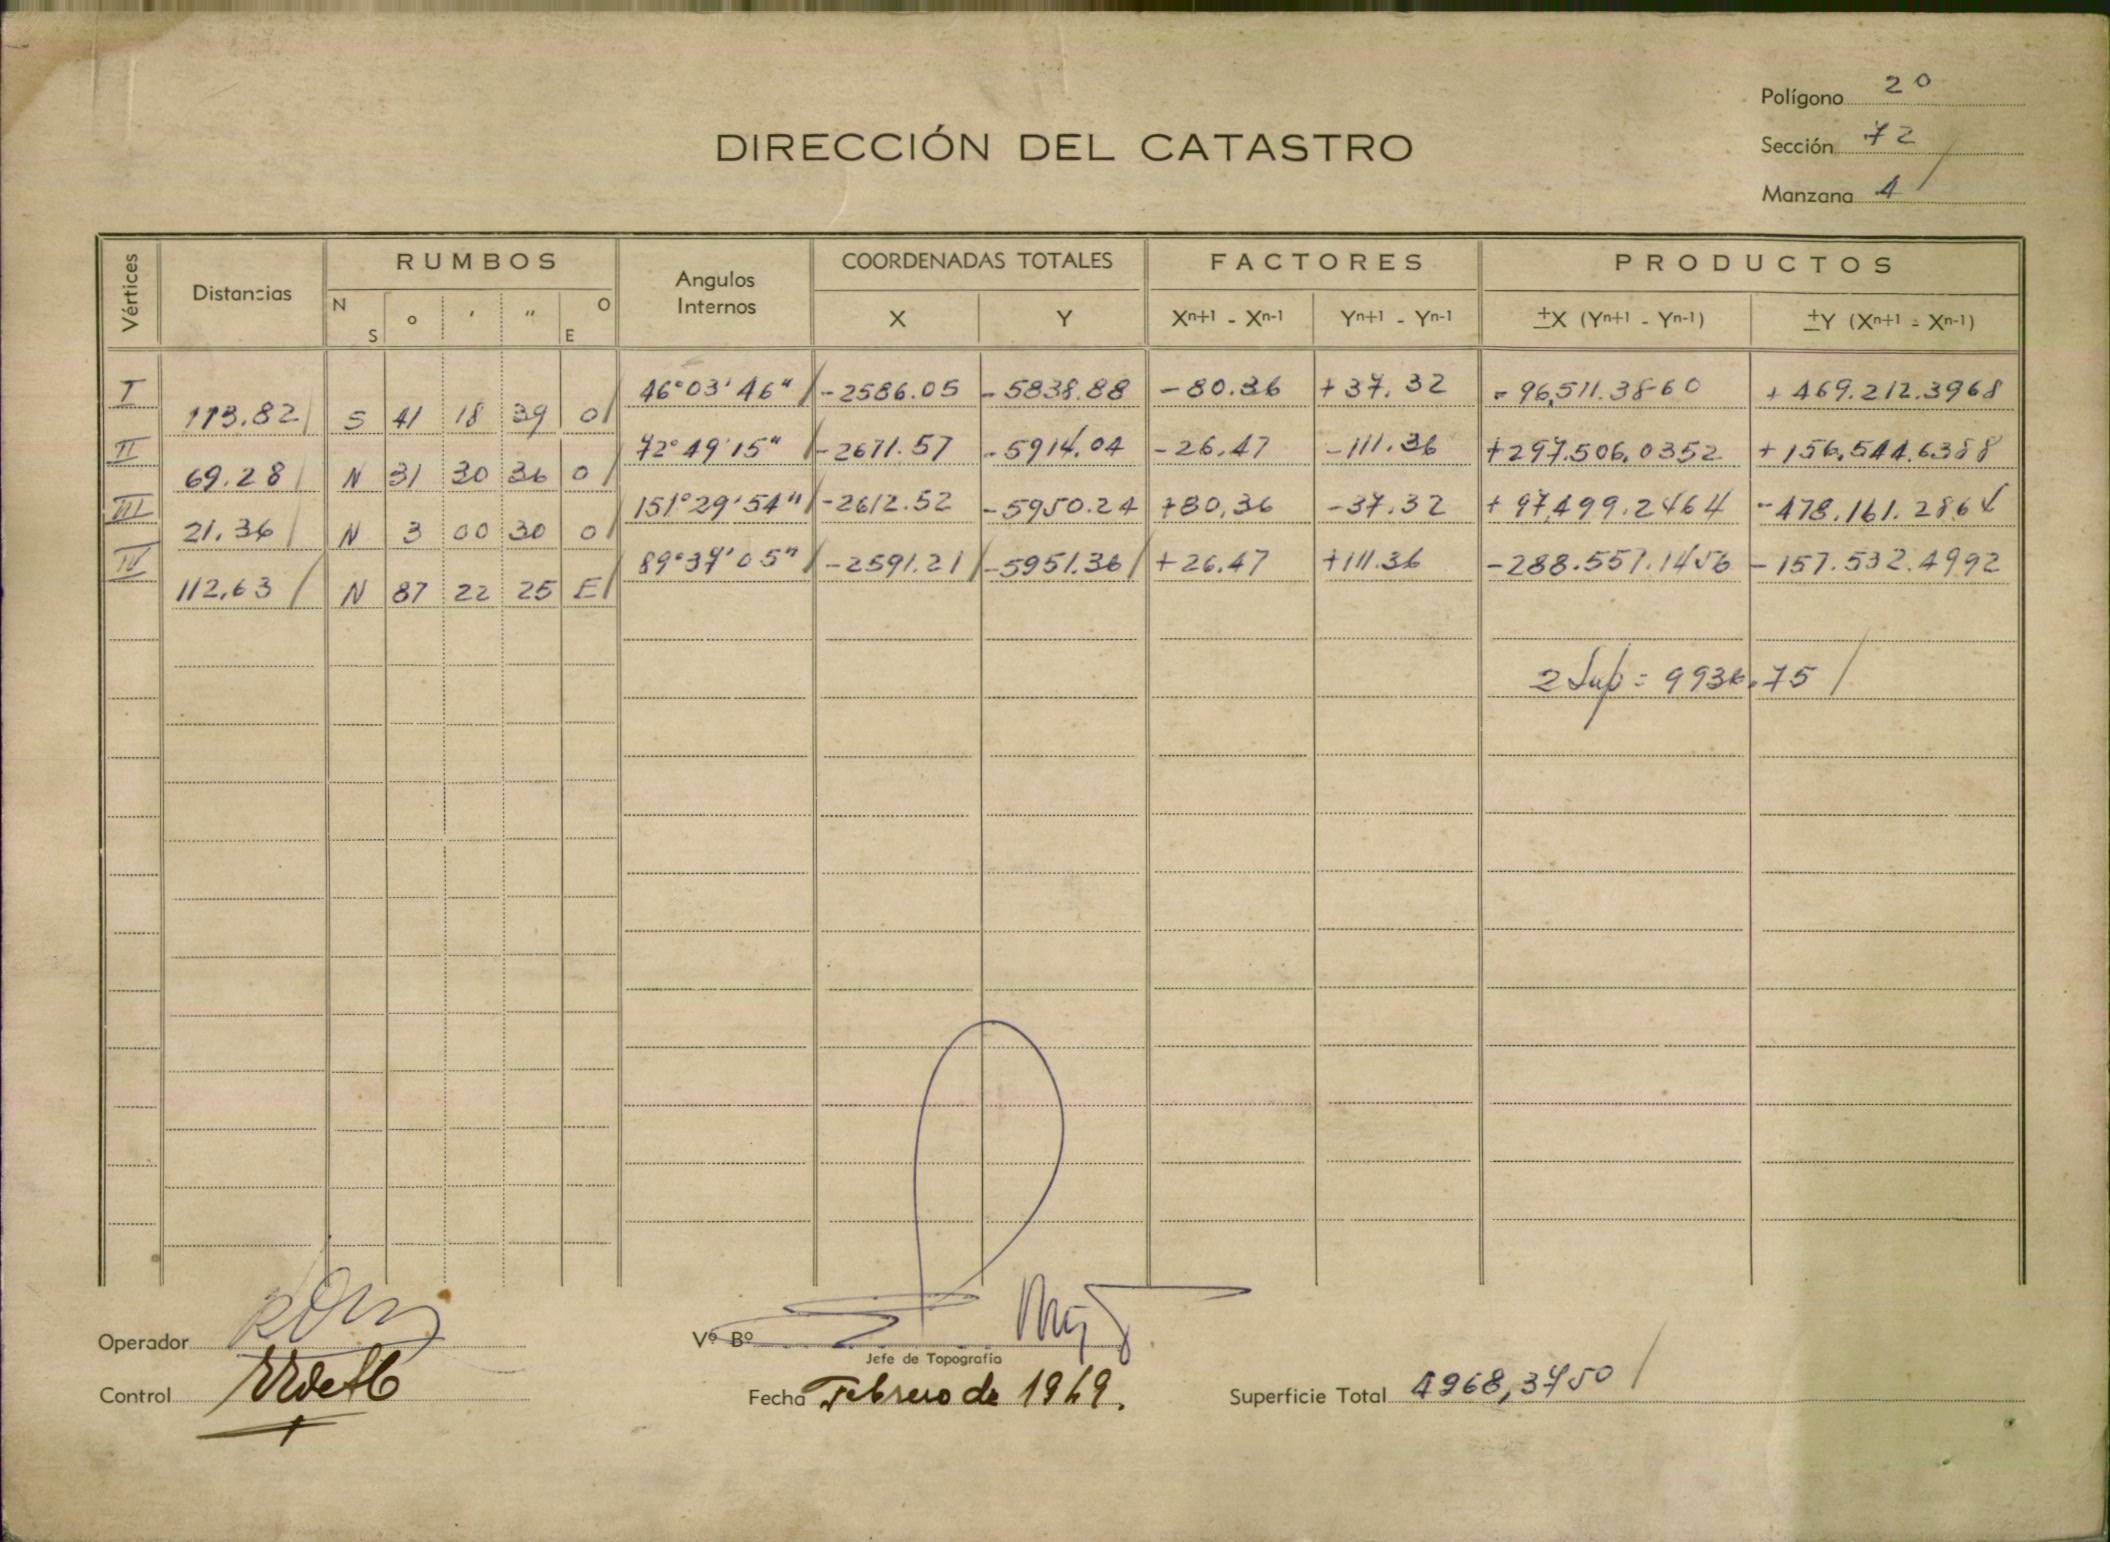 Polígono 2º
DIRECCIÓN DEL CATASTRO
Sección 72
Manzana 4
Vértices Distancias RUMBOS Angulos Internos COORDENADAS TOTALES FACTORES PRODUCTOS
N S o ′ ″ O E X Y Xn+1 - Xn-1 Yn+1 - Yn-1 ±X (Yn+1 - Yn-1) ±Y (Xn+1 - Xn-1)
I 46°03'46" -2586.05 -5838.88 -80.36 +37.32 -96.511.3860 +469.212.3968
113.82 S 41 18 39 O
II 72°49'15" -2671.57 -5914.04 -26.47 -111.36 +297.506.0352 +156.544.6388
69.28 N 31 30 36 O
III 151°29'54" -2612.52 -5950.24 +80.36 -37.32 +97.499.2464 -478.161.2864
21.36 N 3 00 30 O
IV 89°37'05" -2591.21 -5951.36 +26.47 +111.36 -288.557.1456 -157.532.4992
112.63 N 87 22 25 E
2 Sup = 9936.75
Operador
Vº Bº
Jefe de Topografía
Control
Fecha Febrero de 1969.
Superficie Total 4968,3750